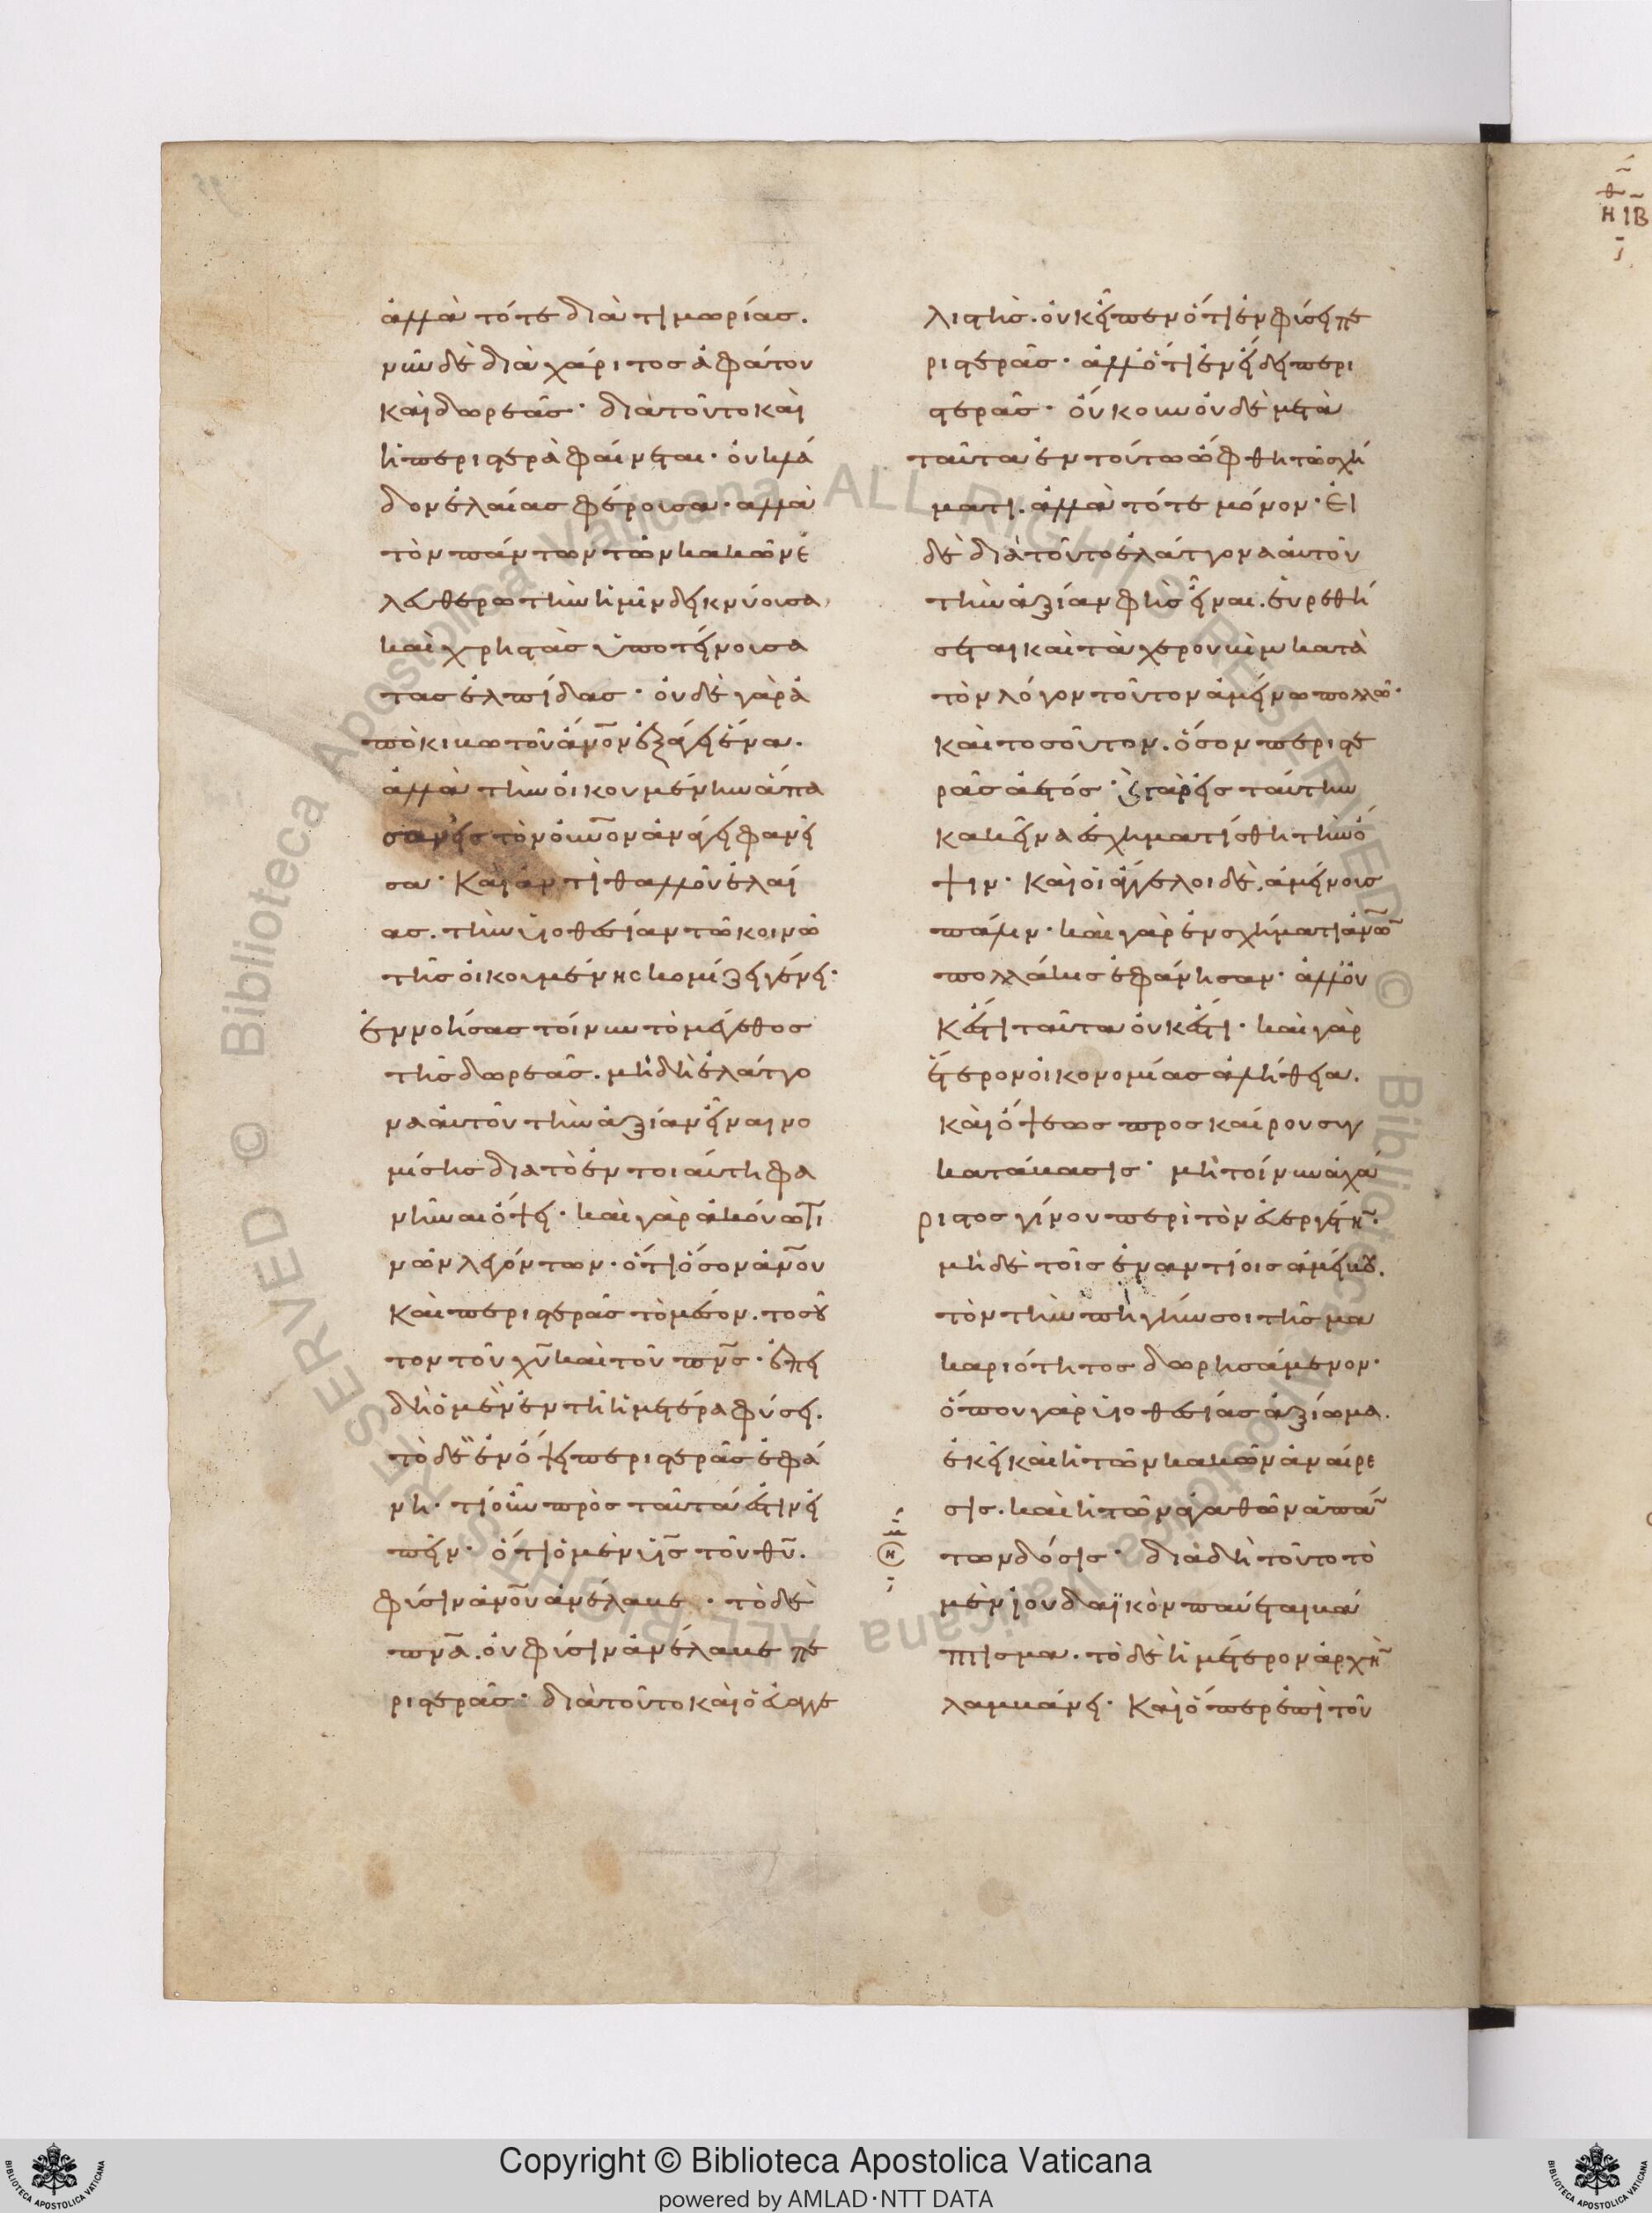 ἀλλὰ τότε διὰ τιμωρίας.
νῦν δὲ διὰ χάριτος ἀφάτου
καὶ δωρεᾶς· διατοῦτο καὶ
ἡ περιστερὰ φαίνεται· οὐ κλά
δον ἐλαίας φέρουσα· ἀλλὰ
τὸν πάντων τῶν κακῶν ἐ
λευθερωτὴν ἡμῖν δεικνύουσα,
καὶ χρηστὰς ὑποτείνουσα
τας ἐλπίδας· οὐδὲ γὰρ ἀ
πὸ κιβωτοῦ ἄνον ἐξάγει ἕνα.
ἀλλὰ τὴν οἰκουμένην ἅπα
σαν εἰς τὸν οὐνον ἀνάγει φανεῖ
σα· Καὶ ἀντὶ θαλλοῦ ἐλαί
ας. τὴν υἱοθεσίαν τῶ κοινῶ
τῆς οἰκουμένης κομίζει γένει·
ἐννοήσας τοίνυν τὸ μέγεθος
τῆς δωρεᾶς. μὴ δὴ ἐλάττο
να αὐτοῦ τὴν ἀξίαν εἶναι νο
μίσης διατὸ ἐν τοιαύτη φα
νῆναι ὄψει· καὶ γὰρ ἀκούω τι
νῶν λεγόντων· ὅτι ὅσον ἀνου
καὶ περιστερᾶς τὸ μέσον. τοσοῦ
τον τοῦ χυ καὶ τοῦ πνς· ἐπει
δὴ ὁ μὲν ἐν τῆ ἡμετέρα φύσει.
τὸ δὲ ἐν ὄψει περιστερᾶς ἐφά
νη· τί οὖν πρὸς ταῦτα ἔστιν εἰ
πεῖν· ὅτι ὁ μὲν υἱς τοῦ θυ.
φύσιν ἀνου ἀνέλαβε· τὸ δὲ
πνα. οὐ φύσιν ἀνέλαβε πε
ριστερᾶς· διατοῦτο καὶ ὁ εὐαγγε
λιστὴς. οὐκ εἶπεν ὅτι ἐν φύσει πε
ριστερᾶς· ἀλλ' ὅτι ἐν εἴδει περι
στερᾶς· οὔκουν οὐδὲ μετὰ
ταῦτα ἐν τούτω ὤφθη τῶ σχή
ματι. ἀλλὰ τότε μόνον· Εἰ
δὲ διὰ τοῦτο ἐλάττονα αὐτοῦ
τὴν ἀξίαν φὴς εἶναι. εὑρεθή
σεται καὶ τὰ χερουβὶμ κατὰ
τὸν λόγον τοῦτον ἀμείνω πολλῶ·
καὶ τοσοῦτον. ὅσον περιστε
ρᾶς ἀετός· καὶ γὰρ εἰς ταύτην
κακεῖνα ἐσχηματίσθη τὴν ὄ
ψιν· Καὶ οἱ ἄγγελοι δὲ, ἀμείνους
πάλιν· καὶ γὰρ ἐν σχήματι ἀνων
πολλάκις ἐφάνησαν· ἀλλ' οὐ
κ ἔστι ταῦτα οὐκ ἔστι· καὶ γὰρ
ἕτερον οἰκονομίας ἀλήθεια.
καὶ ὄψεως προς καίρου συγ
κατάβασις· μὴ τοίνυν ἀχά
ριστος γίνου περὶ τὸν εὐεργέτην·
μηδὲ τοῖς ἐναντίοις ἀμείβου.
τὸν τὴν πηγήν σοι τῆς μα
καριότητος δωρησάμενον·
ὅπου γὰρ υἱοθεσίας ἀξίωμα.
ἐκεῖ καὶ ἡ τῶν κακῶν ἀναίρε
σις. καὶ ἡ τῶν ἀγαθῶν ἁπάν
των δόσις· διὰ δὴ τοῦτο τὸ
μὲν ἰουδαϊκὸν παύεται βά
πτισμα. τὸ δὲ ἡμέτερον ἀρχὴν
λαμβάνει· Καὶ ὅπερ ἐπὶ τοῦ
Copyright © Biblioteca Apostolica Vaticana
powered by AMLAD·NTT DATA